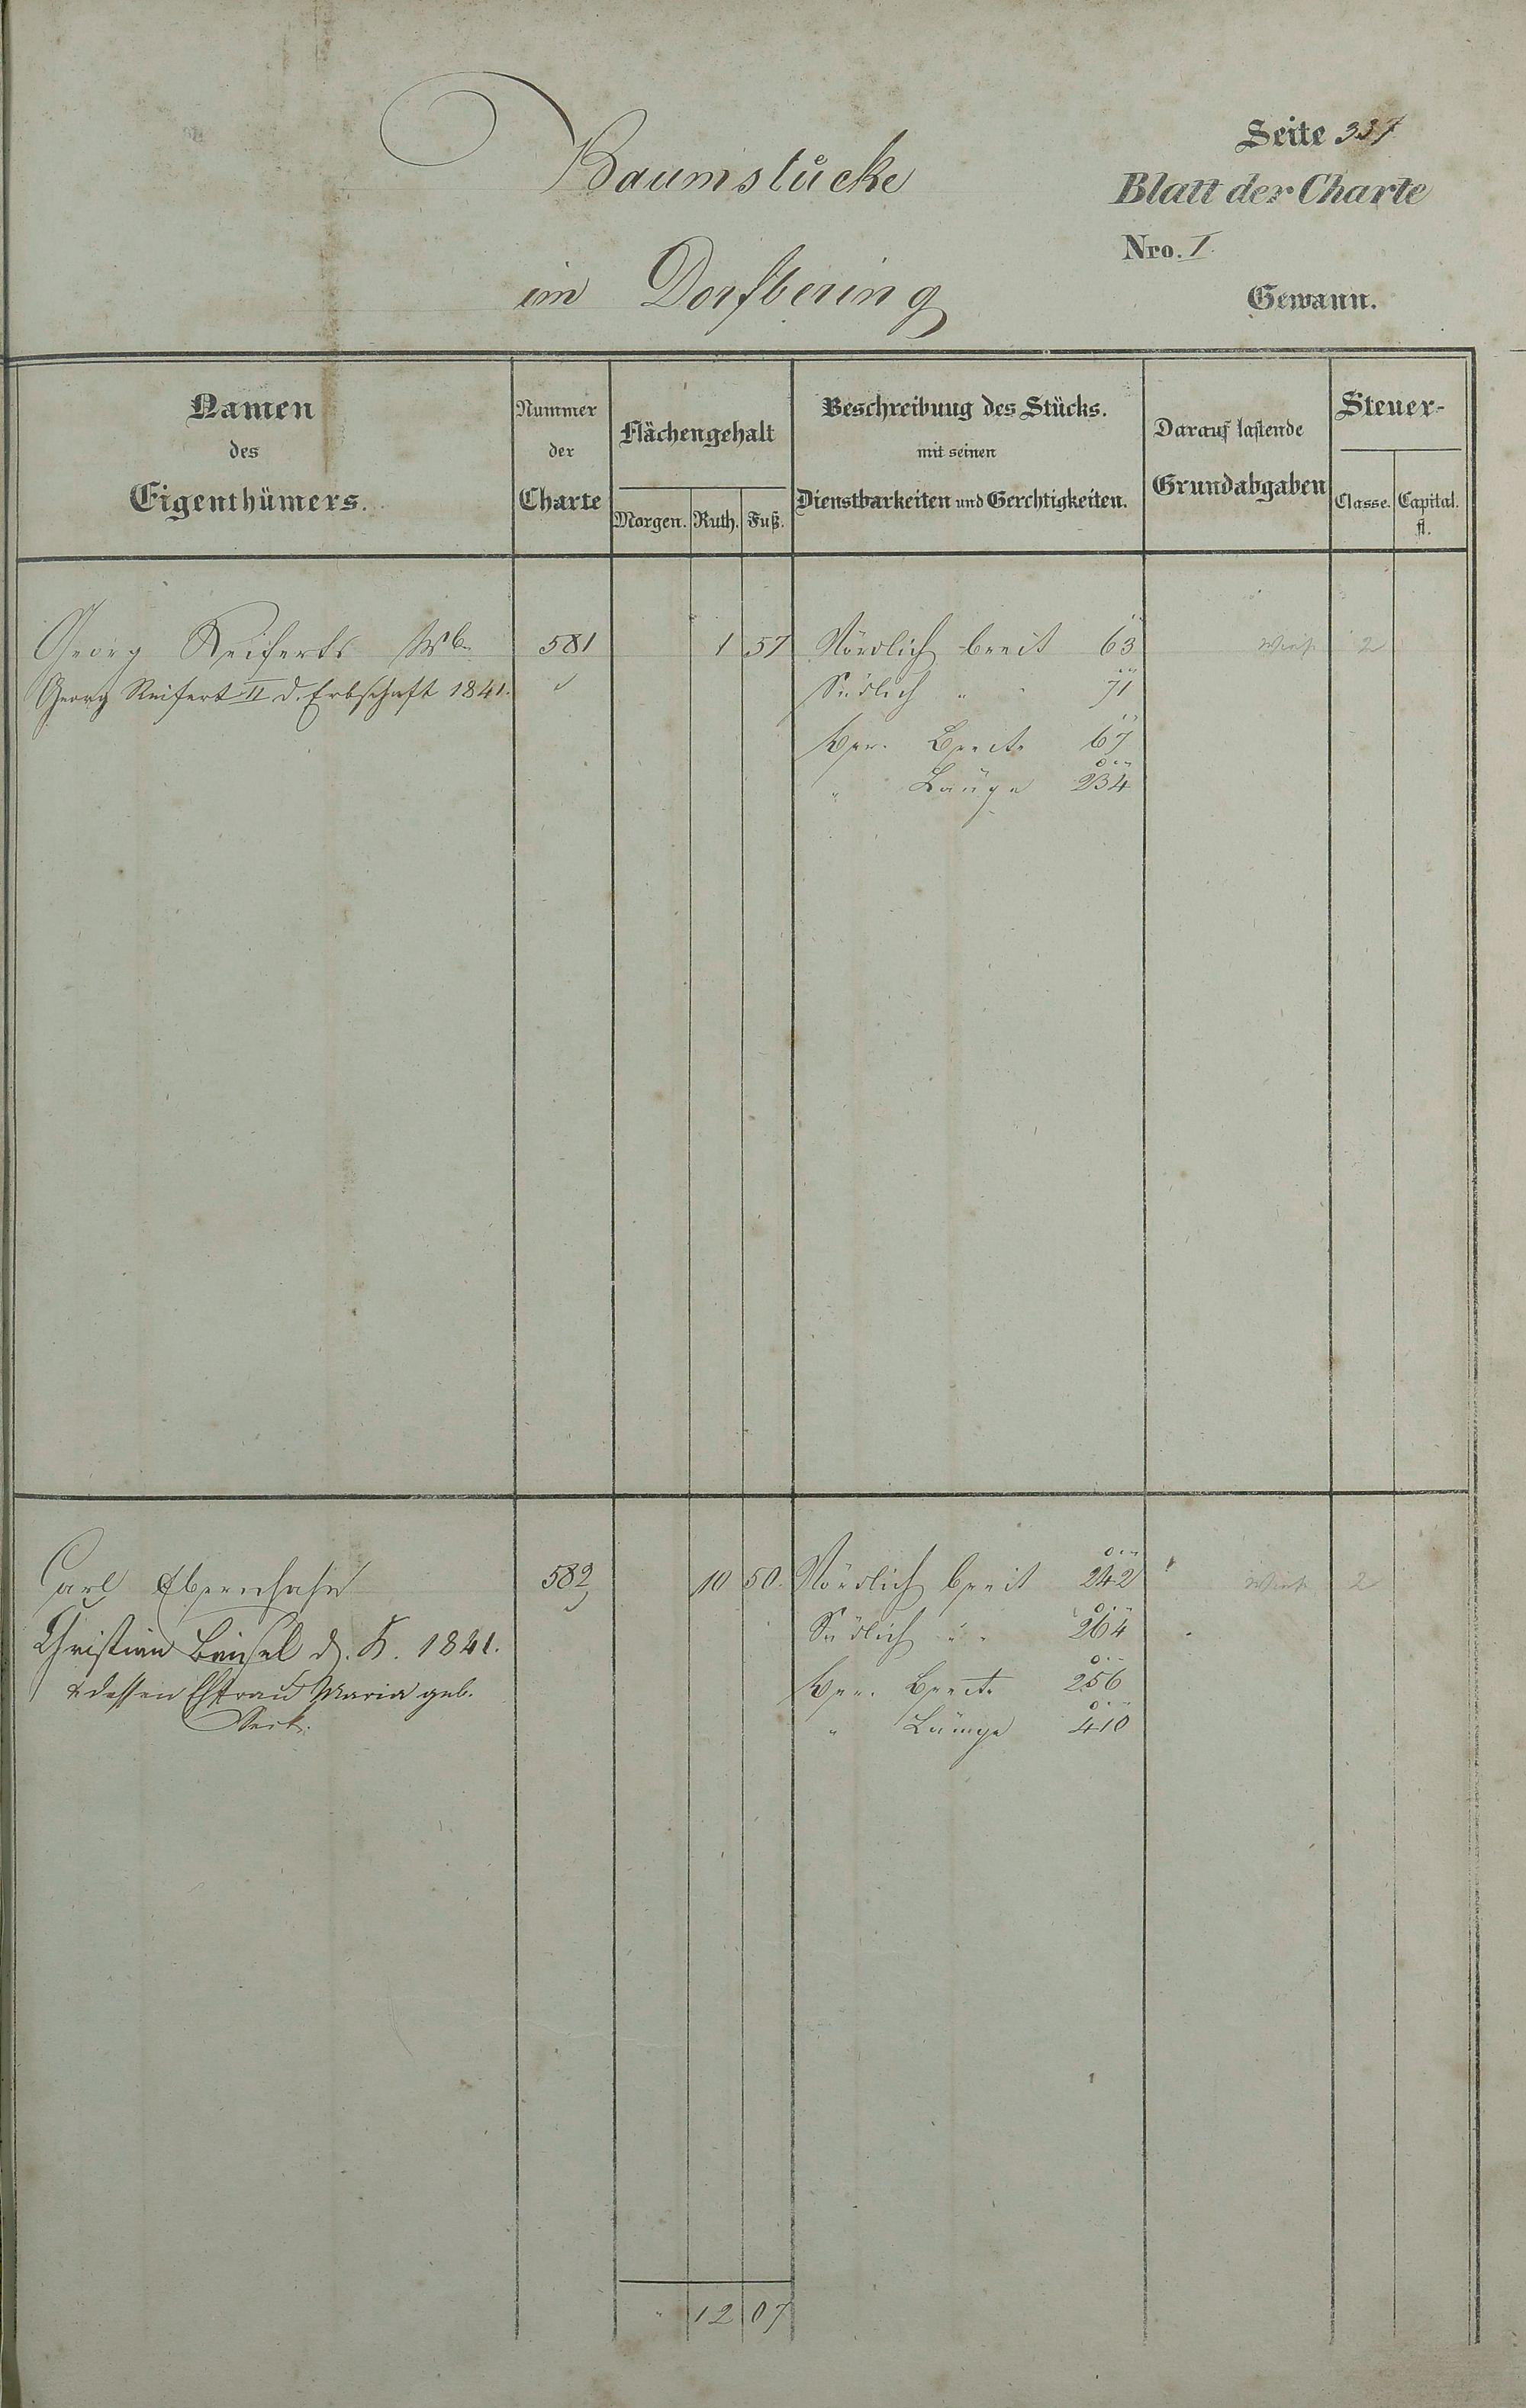 Seite 337
Baumstücke
Blatt der Charte
Nro. I.
im Dorfbering
Gewann.
Namen des Eigenthümers.
Nummer der Charte
Flächengehalt
Morgen. Ruth. Fuß.
Beschreibung des Stücks. mit seinen Dienstbarkeiten und Gerechtigkeiten.
Darauf lastende Grundabgaben
Steuer-
Classe. Capital. fl.
Georg Reiferts Wb. 581 1 57 Nördlich breit 63 2
Georg Reifert II d. Erbschaft 1841. Südlich " " 71
Breite 67
" Länge 234
Carl Ebernhahn 582 10 50 Nördlich breit 242 2
Christian d. K. 1841. Südlich " " 264
& dessen Ehfrau Maria geb. Breite 256
" Länge 410
" 12 07